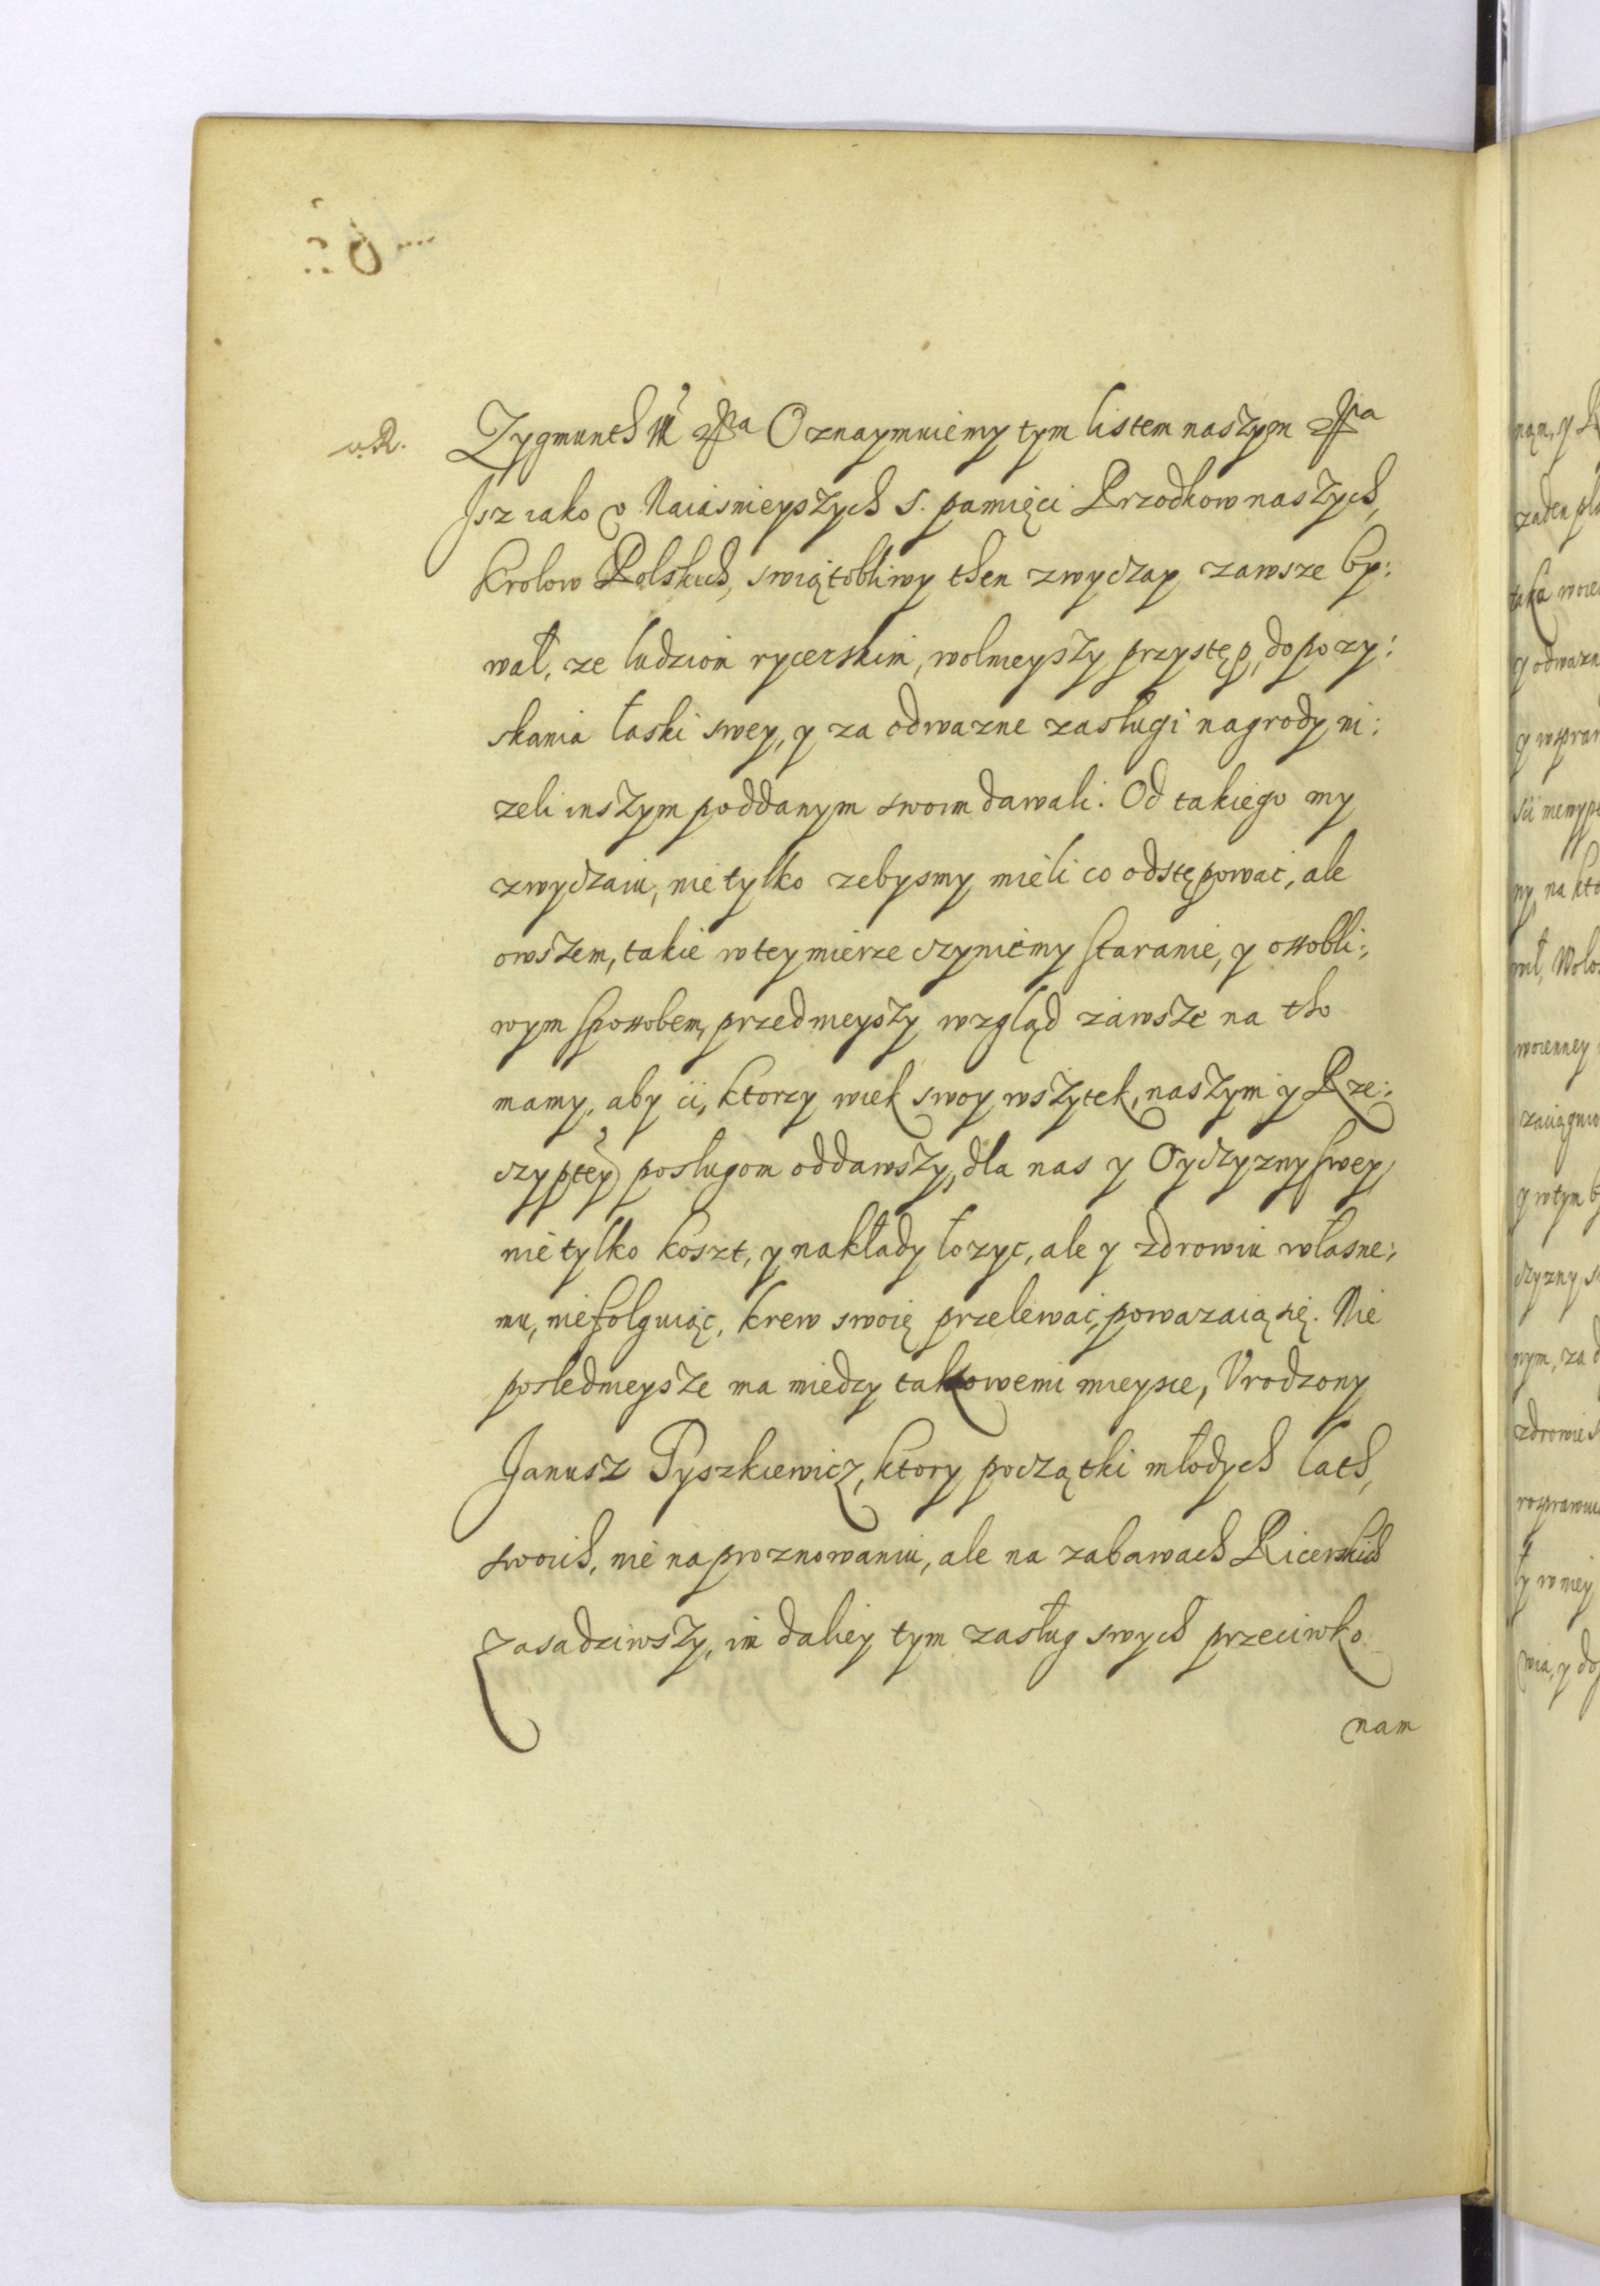 Zygmunth III &c&ra Oznaymuiemy tym listem naszym &c&ra
Isz iako v Naiasnieyszych S. pamięci Przodkow naszych,
Krolow Polskich, swiątobliwy then zwyczay zawsze by:
wał, ze ludziom rycerskim, wolnieyszy przystęp, do pozy:
skania łaski swey, y za odwazne zasługi nagrody ni:
zeli inszym poddanym swoim dawali. Od takiego my
zwyczaiu, nie tylko zebysmy mieli co odstępowac, ale
owszem, takie w tey mierze czyniemy staranie, y ossobli:
wym sposobem, przednieyszy wzgląd zawsze na tho
mamy, aby ci, ktorzy wiek swoy wszytek, naszym y Rze:
czyptey posługom oddawszy, dla nas y Oyczyzny swey,
nie tylko koszt, y nakłady łozyc, ale y zdrowiu własne:
mu, niefolguiąc, krew swoię przelewac, powazaią się. Nie
poslednieysze ma miedzy takowemi mieysce, Vrodzony
Janusz Tyszkiewicz, ktory początki młodych lath,
swoich, nie na proznowaniu, ale na zabawach Ricerskich
zasadziwszy, im daliey tym zasług swych przeciwko
nam